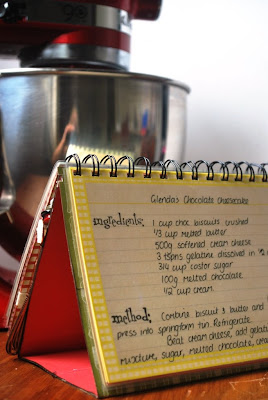 90
Glenda's Chocolate Cheesecake
ingredients: 1 cup choc biscuits crushed
1/3 cup melted butter
500g softened cream cheese
3 tspns gelatine dissolved in
3/4 cup castor sugar
100g melted chocolate
1/2 cup cream.
method: Combine biscuits & butter and
press into springform tin. Refrigerate.
Beat cream cheese, add gelatine
mixture, sugar, melted chocolate,